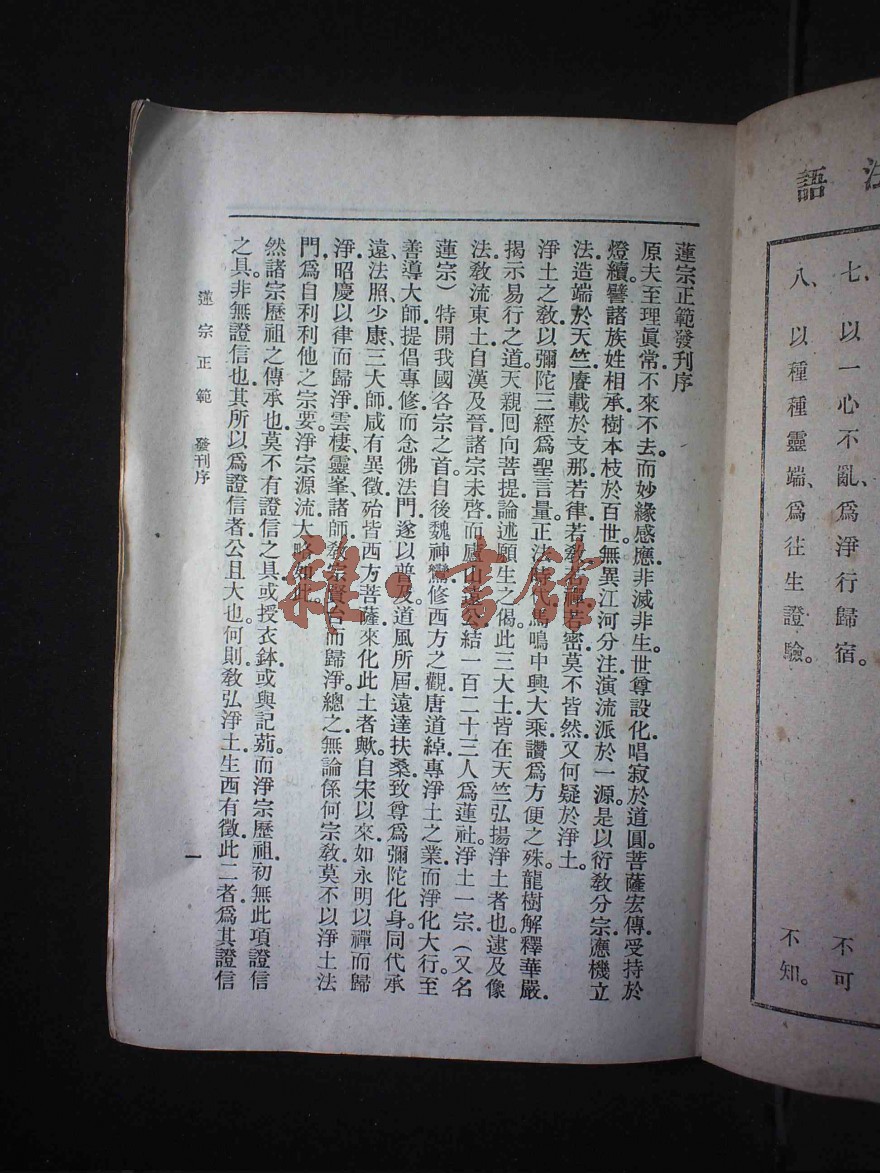 注
語
七、以一心不亂、爲淨行歸宿。 不可
八、以種種靈端、爲往生證驗。 不知。
蓮宗正範發刊序
原夫至理眞常。不來不去。而妙緣感應。非滅非生。世尊設化。唱寂於道圓。菩薩宏傳。受持於
燈續。譬諸族姓相承。樹本枝於百世。無異江河分注。演流派於一源。是以衍教分宗。應機立
法。造端於天竺。賡載於支那。若律若教若禪若密。莫不皆然。又何疑於淨土。
淨土之教。以彌陀三經爲聖言量。正法時代。馬鳴中興大乘。讚爲方便之殊。龍樹解釋華嚴。
揭示易行之道。天親回向菩提。論述願生之偈。此三大士皆在天竺弘揚淨土者也。逮及像
法。教流東土。自漢及晉。諸宗未啓。而廬山遠公結一百二十三人爲蓮社。淨土一宗（又名
蓮宗）特開我國各宗之首。自後魏神鸞修西方之觀。唐道綽專淨土之業。而淨化大行。至
善導大師提倡專修。而念佛法門。遂以普及。道風所屆。遠達扶桑。致尊爲彌陀化身。同代承
遠、法照、少康、三大師咸有異徵。殆皆西方菩薩。來化此土者歟。自宋以來。如永明以禪而歸
淨。昭慶以律而歸淨。雲棲、靈峯、諸師教宗賢台而歸淨。總之無論係何宗教。莫不以淨土法
門。爲自利利他之宗要。淨宗源流。大略如此。
然諸宗歷祖之傳承也。莫不有證信之具。或授衣鉢。或與記莂。而淨宗歷祖。初無此項證信
之具。非無證信也。其所以爲證信者。公且大也。何則。教弘淨土。生西有徵。此二者。爲其證信
蓮宗正範 發刊序
一
雜·書館